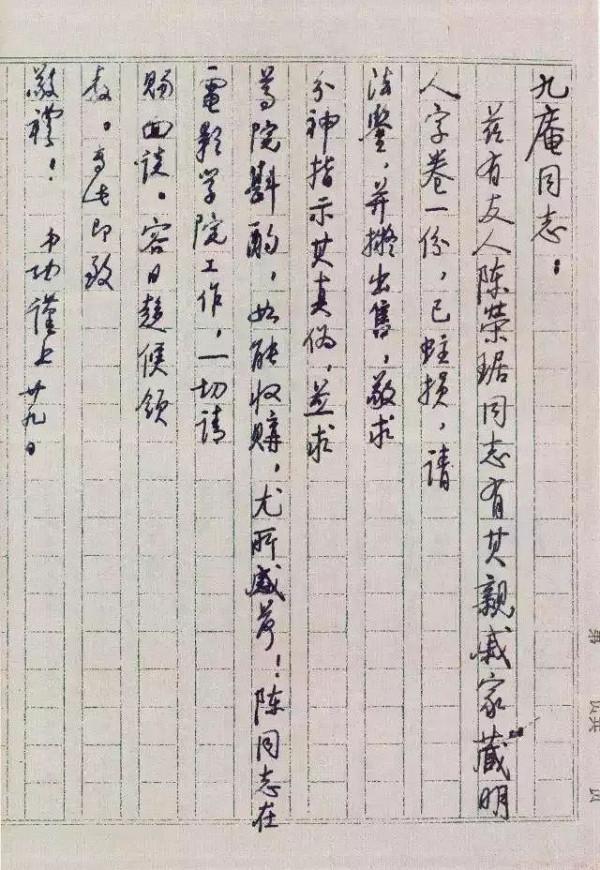 九庵同志：
兹有友人陈荣琚同志有其親戚家藏明
人字卷一份，已蛀损，请
法鑒，并擬出售，敬求
分神指示其真偽，並求
尊院斟酌，如能收購，尤所感荷！陈同志在
電影学院工作，一切请
赐面谈。容日趨候领
教。专此即致
敬禮！ 弟功謹上 廿九日
第